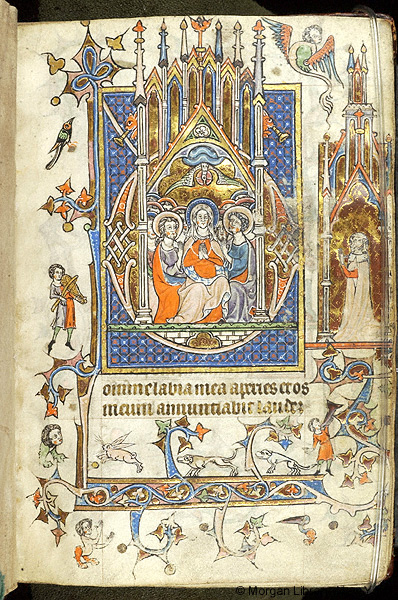 omine labia mea aperies et os
meum annunciabit laudem
© Morgan Library